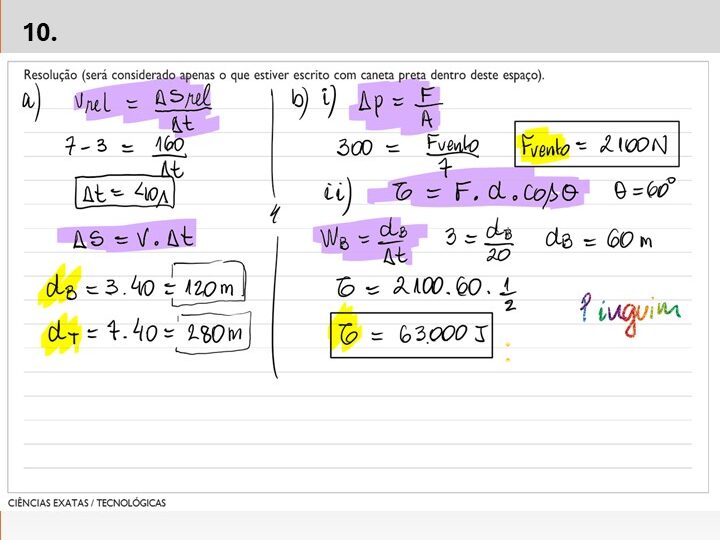 10.
Resolução (será considerado apenas o que estiver escrito com caneta preta dentro deste espaço).
a) Vrel = ΔSrel / Δt
7 - 3 = 160 / Δt
Δt = 40s
ΔS = V . Δt
dB = 3.40 = 120m
dT = 7.40 = 280m
b) i) Δp = F / A
300 = Fvento / 7 Fvento = 2100N
ii) τ = F. d. cosθ θ = 60°
WB = dB / Δt 3 = dB / 20 dB = 60 m
τ = 2100.60. 1/2
τ = 63.000 J
Pinguim
CIÊNCIAS EXATAS / TECNOLÓGICAS